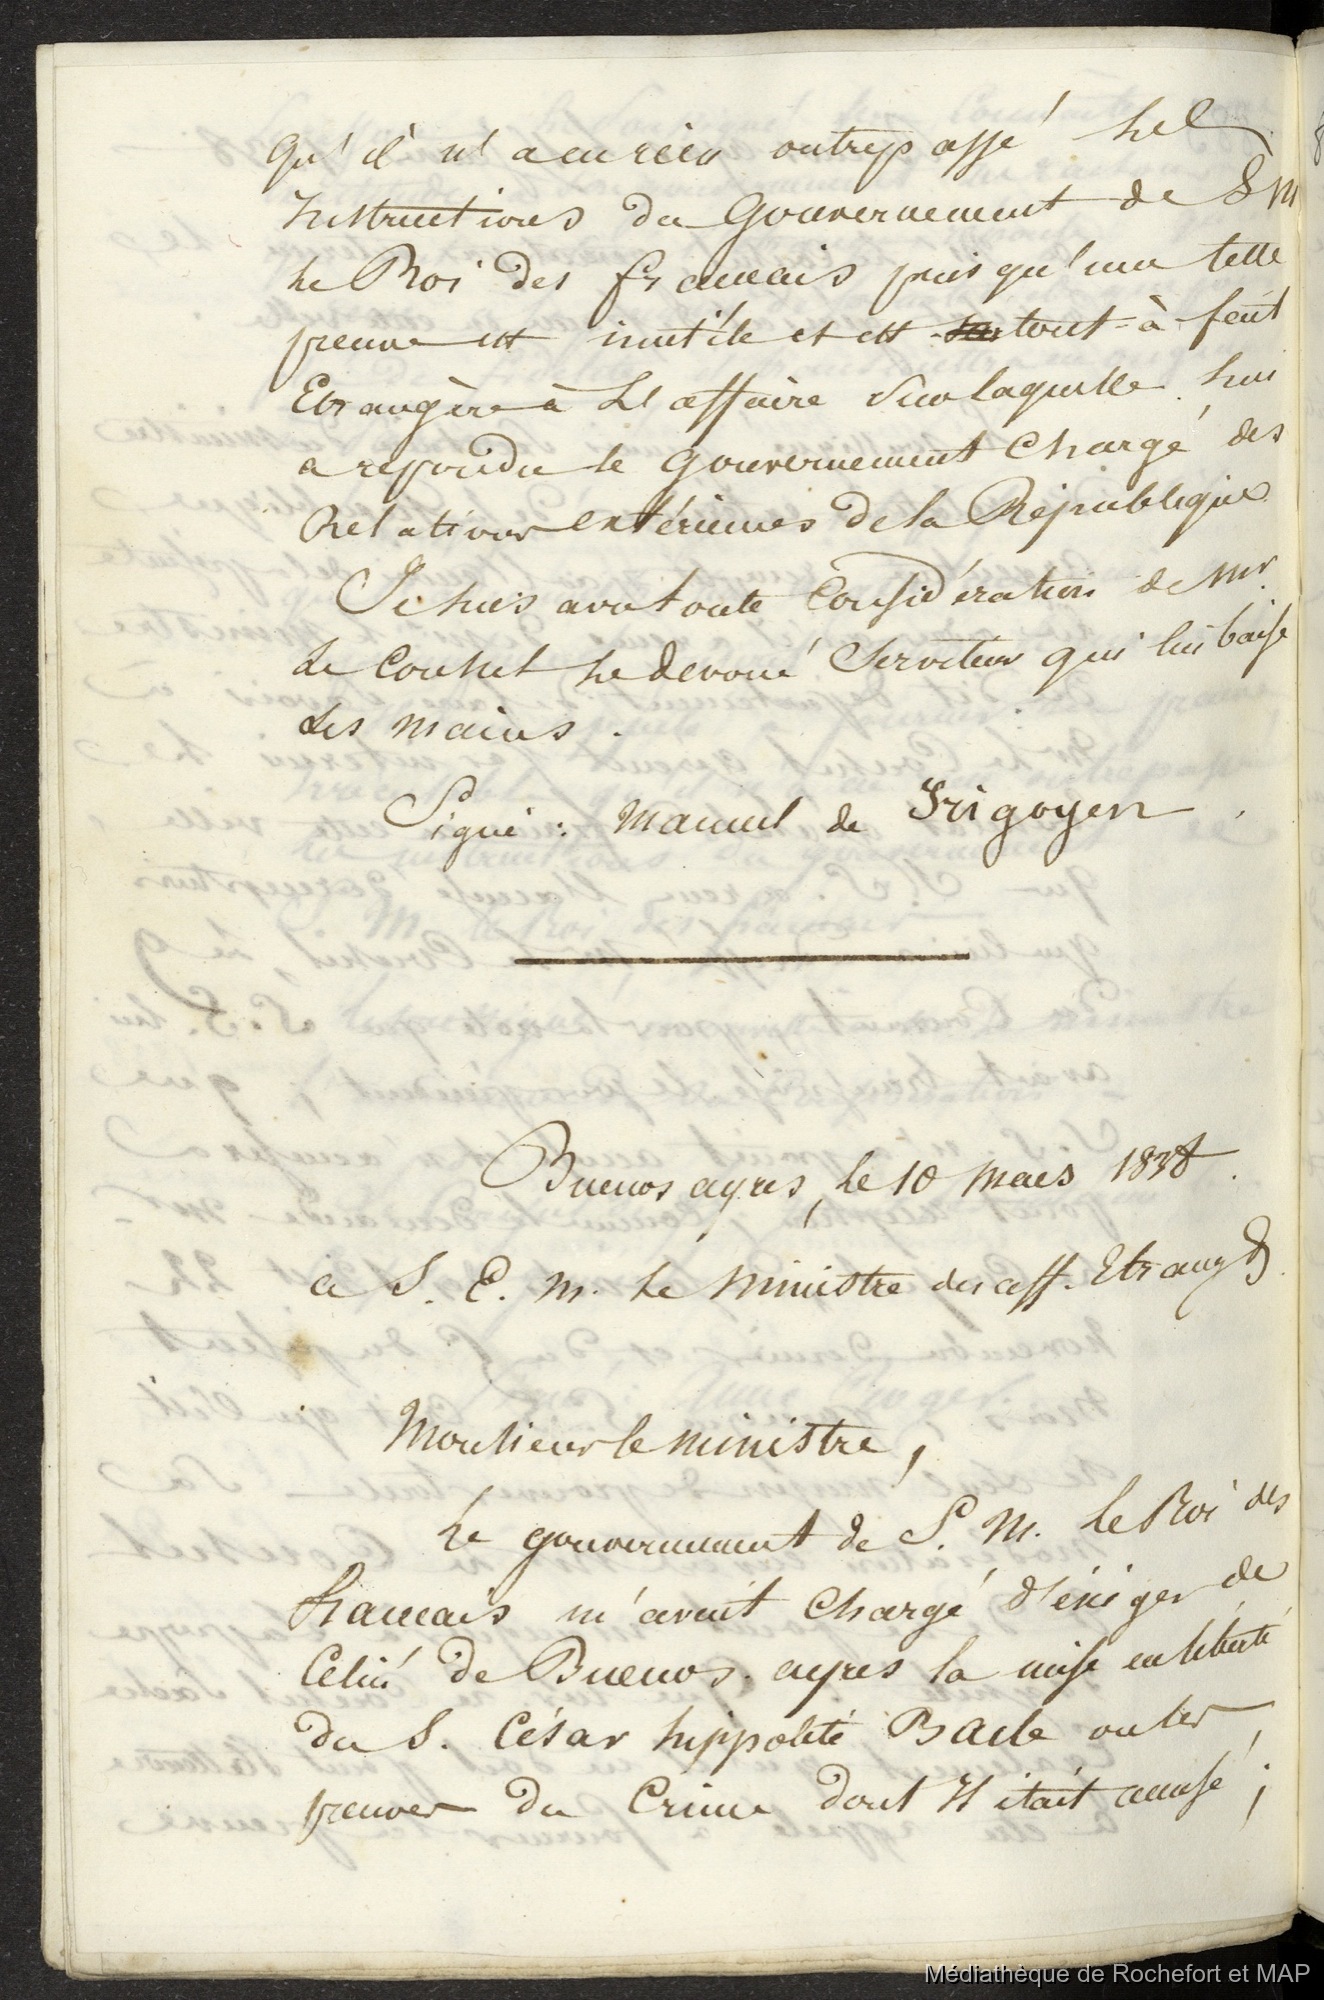 qu'il n'a en rien outrepassé les
Instructions du Gouvernement de S M
le Roi des français puisqu'une telle
preuve est inutile et est tout-à-fait
Etrangère à l'affaire sur laquelle lui
a repondu le gouvernement Chargé des
Relations extérieures de la République
Je suis avec toute Considération de Mr.
Le Consul le devoué Serviteur qui lui baise
Les mains.
Signé : Manuel de Irigoyen
Buenos ayres, le 10 Mars 1838.
a S. E. M. le Ministre des aff. Etrangs.
Monsieur le Ministre,
Le gouvernement de S. M. le Roi des
français m'avait Chargé d'éxiger de
Celui de Buenos-ayres la mise en liberté
du S. César hippolité Bacle ou les
preuves du Crime dont Il était accusé ;
Médiathèque de Rochefort et MAP